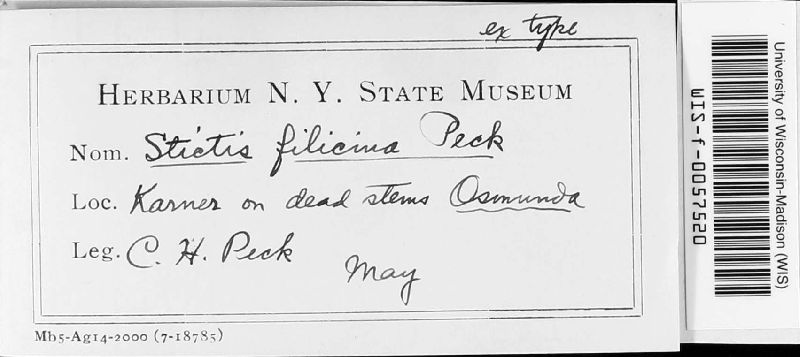 ex type
HERBARIUM N. Y. STATE MUSEUM
Nom. Stictis filicina Peck
Loc. Karner on dead stems Osmunda
Leg. C. H. Peck
May
Mb5-Ag14-2000 (7-18785)
University of Wisconsin-Madison (WIS)
WIS-f-0057520